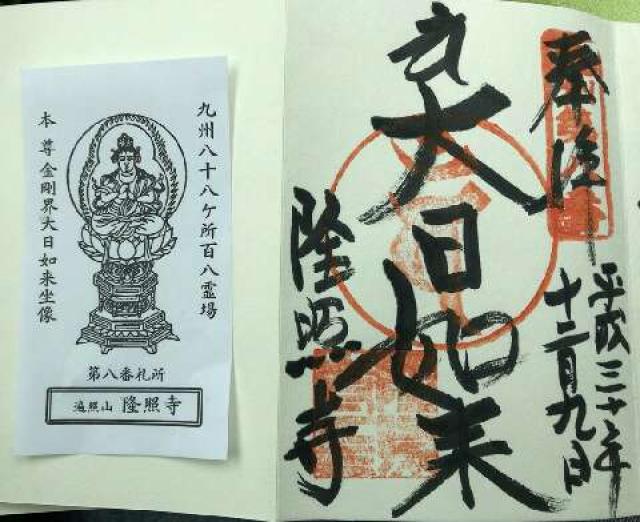 九州八十八ヶ所百八霊場
本尊金剛界大日如来坐像
第八番札所
遍照山 隆照寺
奉
大日如来
平成三十年
十二月九日
隆照寺